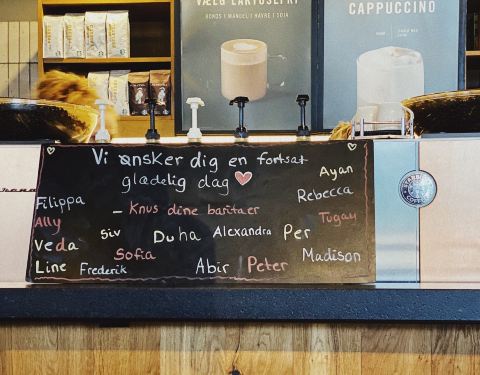 VÆLG LAKTOSEFRI
KOKOS I MANDEL I HAVRE I SOJA
CAPPUCCINO
Vi ønsker dig en fortsat
glædelig dag
- Knus dine baritaer
Ayan
Rebecca
Filippa
Ally
Tugay
Siv
Duha
Alexandra
Per
Veda
Sofia
Madison
Line
Frederik
Abir
Peter
COFFEE